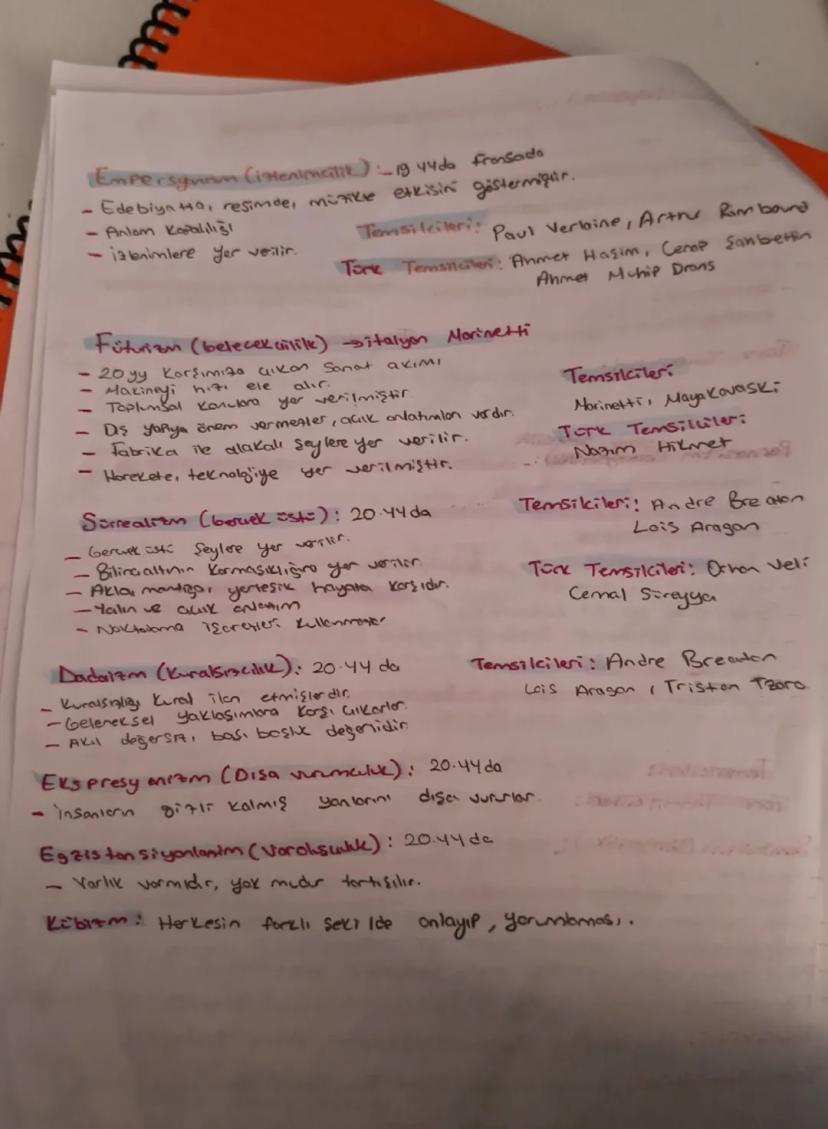 Empersyonizm (izlenimcilik) :- 19.YYda Fransada
- Edebiyatta, resimde, müzikte etkisini göstermiştir.
- Anlam Kapalılığı
- izlenimlere yer verilir.
Temsilcileri: Paul Verlaine, Artur Rimbaund
Türk Temsilcileri: Ahmet Haşim, Cenap Şahbettin
Ahmet Muhip Dranas
Fütürizm (Gelecekçilik) → italyan Marinetti
- 20 yy Karşımıza çıkan sanat akımı
- Makineyi hızı ele alır.
- Toplumsal konulara yer verilmiştir.
- Dış yapıya önem vermezler, açık anlatımları vardır.
- Fabrika ile alakalı şeylere yer verilir.
- Harekete, teknolojiye yer verilmiştir.
Temsilcileri
Marinetti, Mayakovaski
Türk Temsilcileri:
Nazım Hikmet
Sürrealizm (Gerçek üstü): 20.YYda
- Gerçek üstü şeylere yer verilir.
- Bilinçaltının karmaşıklığına yer verilir.
- Akla, mantığa, yerleşik hayata karşıdır.
- Yalın ve açık anlatım
- Noktalama işaretleri kullanmazlar
Temsilcileri: Andre Breaton
Lois Aragon
Türk Temsilcileri: Orhan Veli
Cemal Süreyya
Dadaizm (Kuralsızcılık): 20.YY da
- Kuralsızlığı kural ilan etmişlerdir.
- Geleneksel yaklaşımlara karşı çıkarlar.
- Akıl değersiz, başı boşluk değerlidir.
Temsilcileri: Andre Breaton
Lois Aragon, Tristan Tzara
Ekspresyonizm (Dışa vurumculuk): 20.YYda
- İnsanların gizli kalmış yanlarını dışa vururlar.
Egzistansiyonlanizm (Varoluşculuk): 20.YY da
- Varlık varmıdır, yok mudur tartışılır.
Kübizm: Herkesin farklı şekilde anlayıp, yorumlaması.